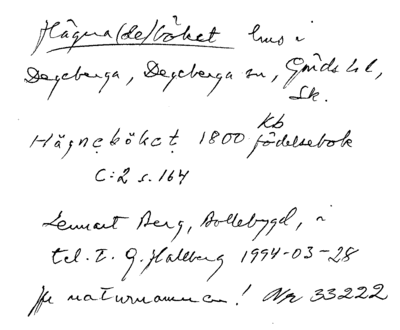 Hägna(de)böket hus i
Degeberga, Degeberga sn, Gärds hd,
Sk.
Kb
Hägneböket 1800 födelsebok
C:2 s. 164
Lennart Berg, Bollebygd, i
tel. t. G. Hallberg 1994-03-28
Jfr naturnamnen! Nr 33222